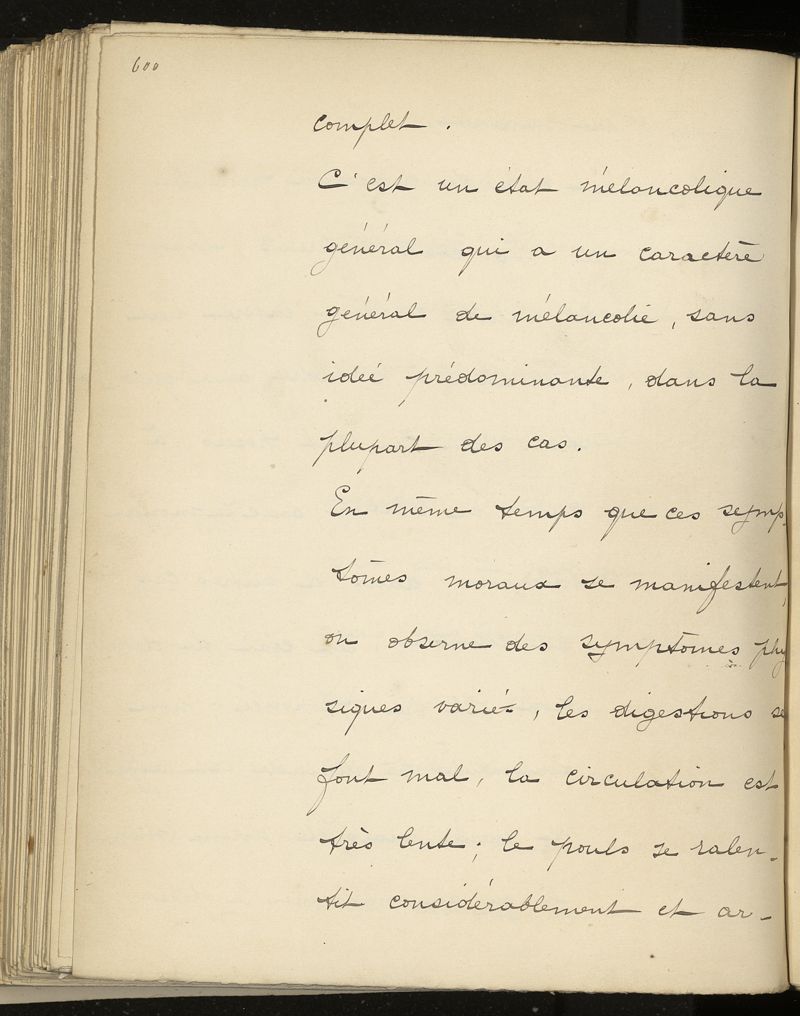 600
complet.
C'est un état mélancolique
général qui a un caractère
général de mélancolie, sans
idée prédominante, dans la
plupart des cas.
En même temps que ces symp-
tômes moraux se manifestent,
on observe des symptômes phy
siques variés, les digestions se
font mal, la circulation est
très lente; le pouls se ralen-
tit considérablement et ar-